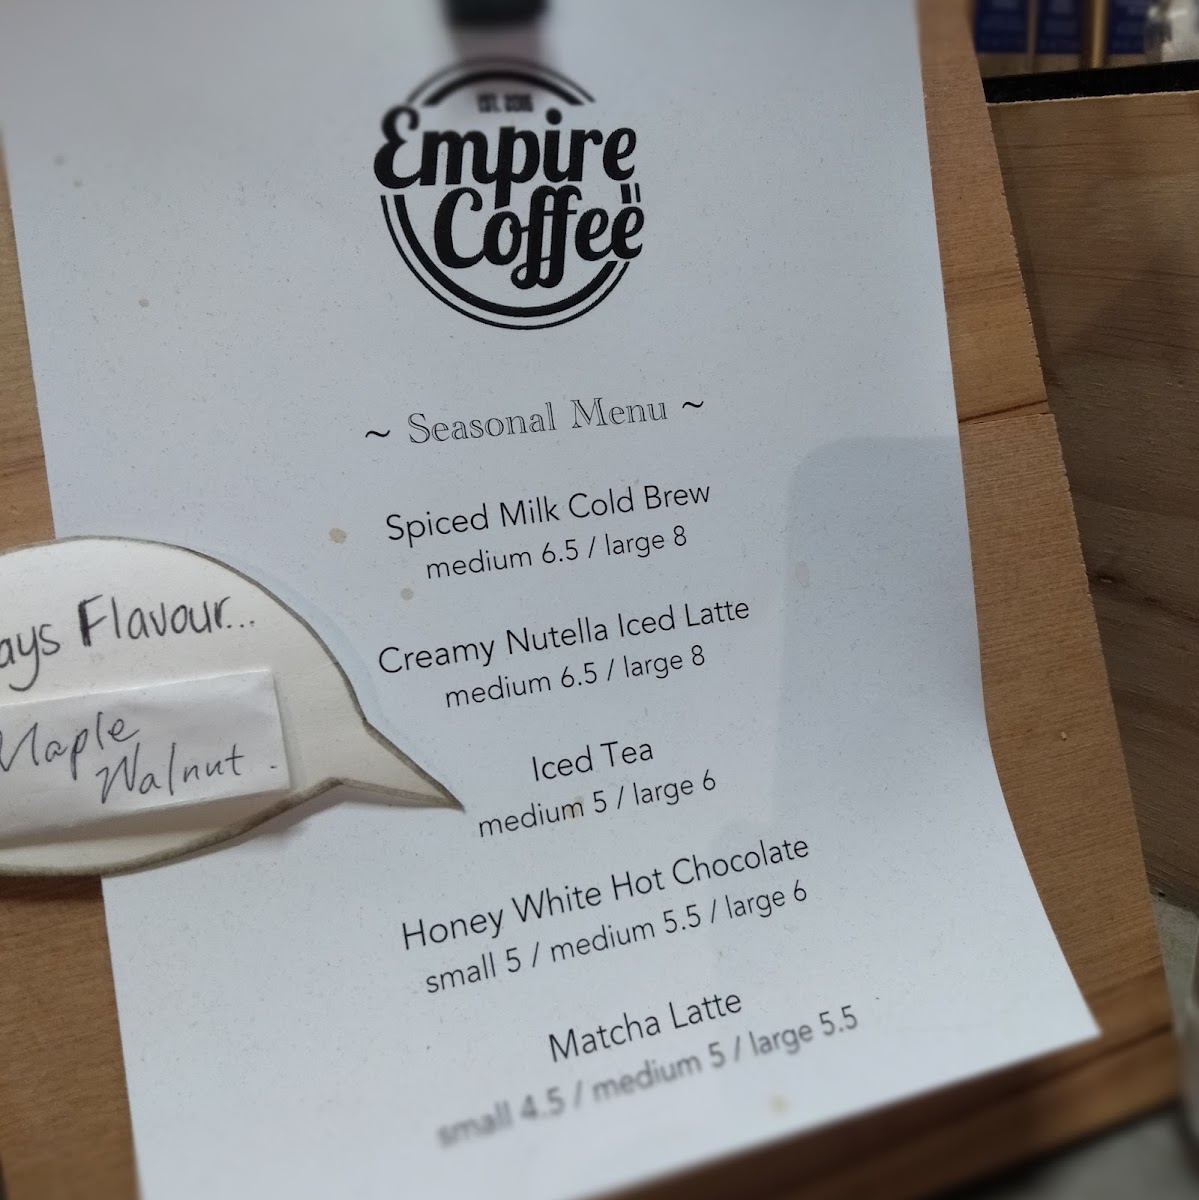 EST. 2016
Empire
Coffee
~ Seasonal Menu ~
Spiced Milk Cold Brew
medium 6.5 / large 8
Creamy Nutella Iced Latte
medium 6.5 / large 8
ays Flavour...
Maple
Walnut.
Iced Tea
medium 5 / large 6
Honey White Hot Chocolate
small 5 / medium 5.5 / large 6
Matcha Latte
small 4.5 / medium 5 / large 5.5